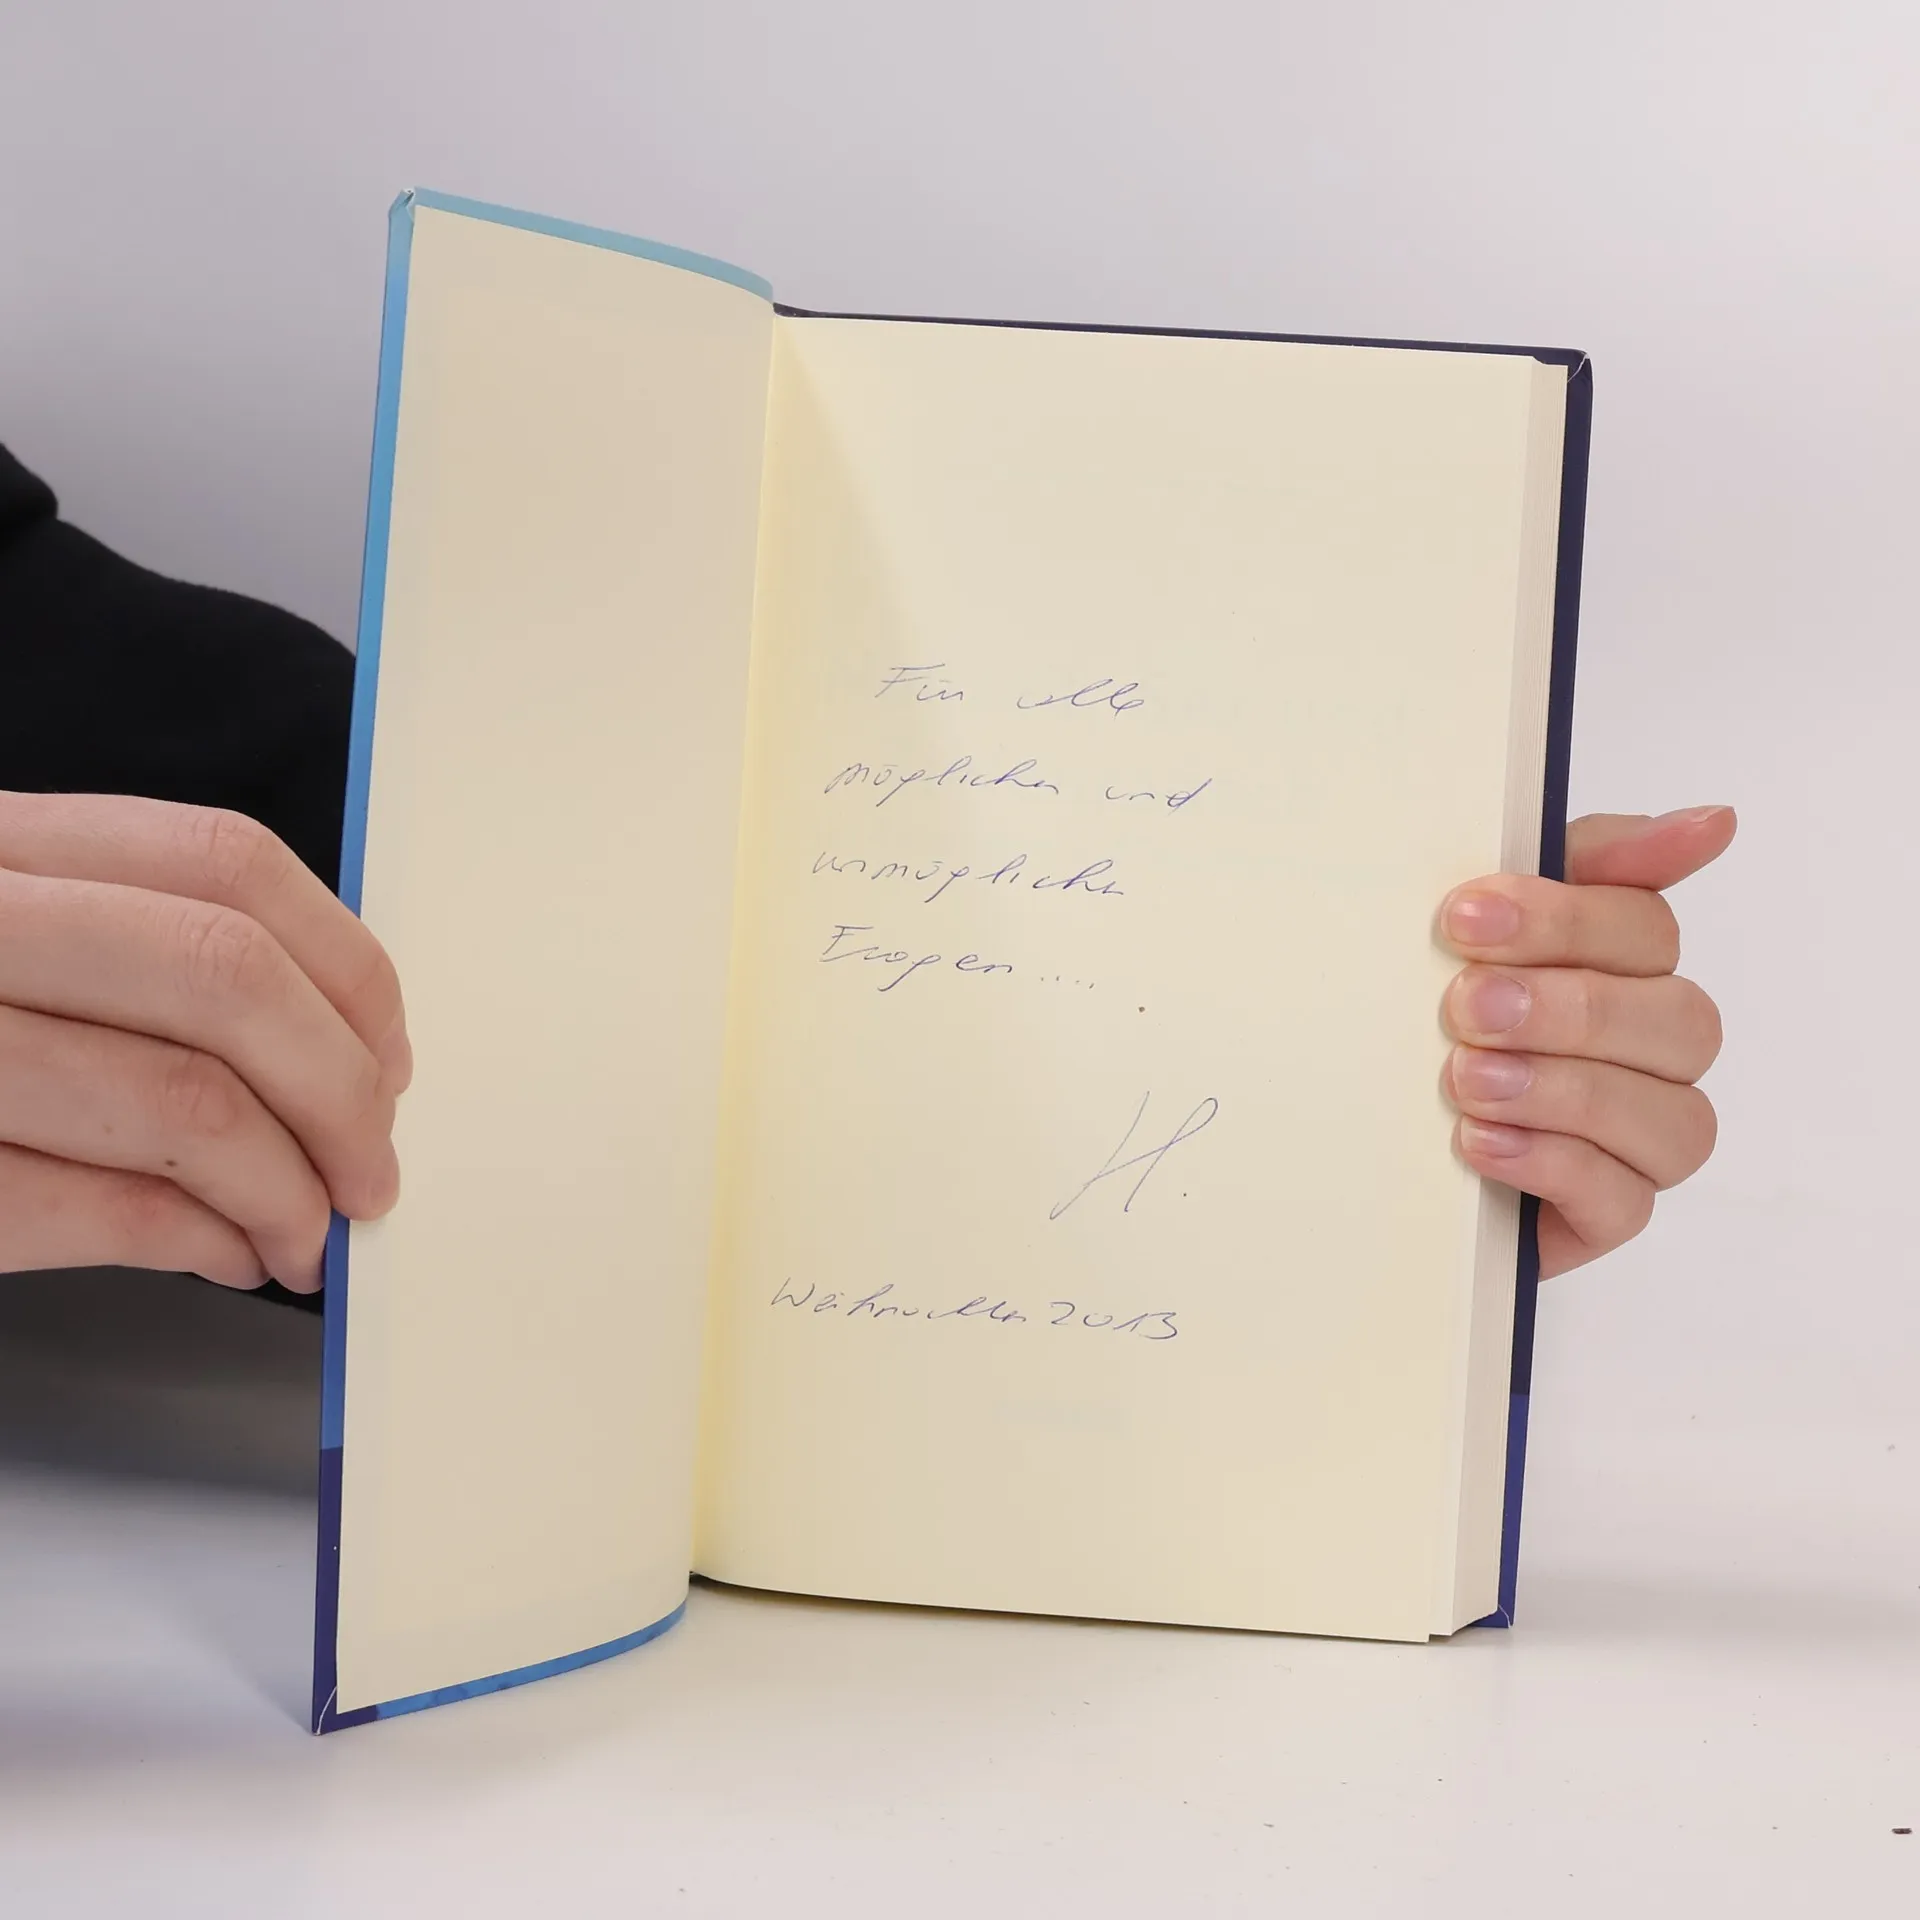 Für alle
möglichen und
unmöglichen
Fragen ....
H.
Weihnachten 2013